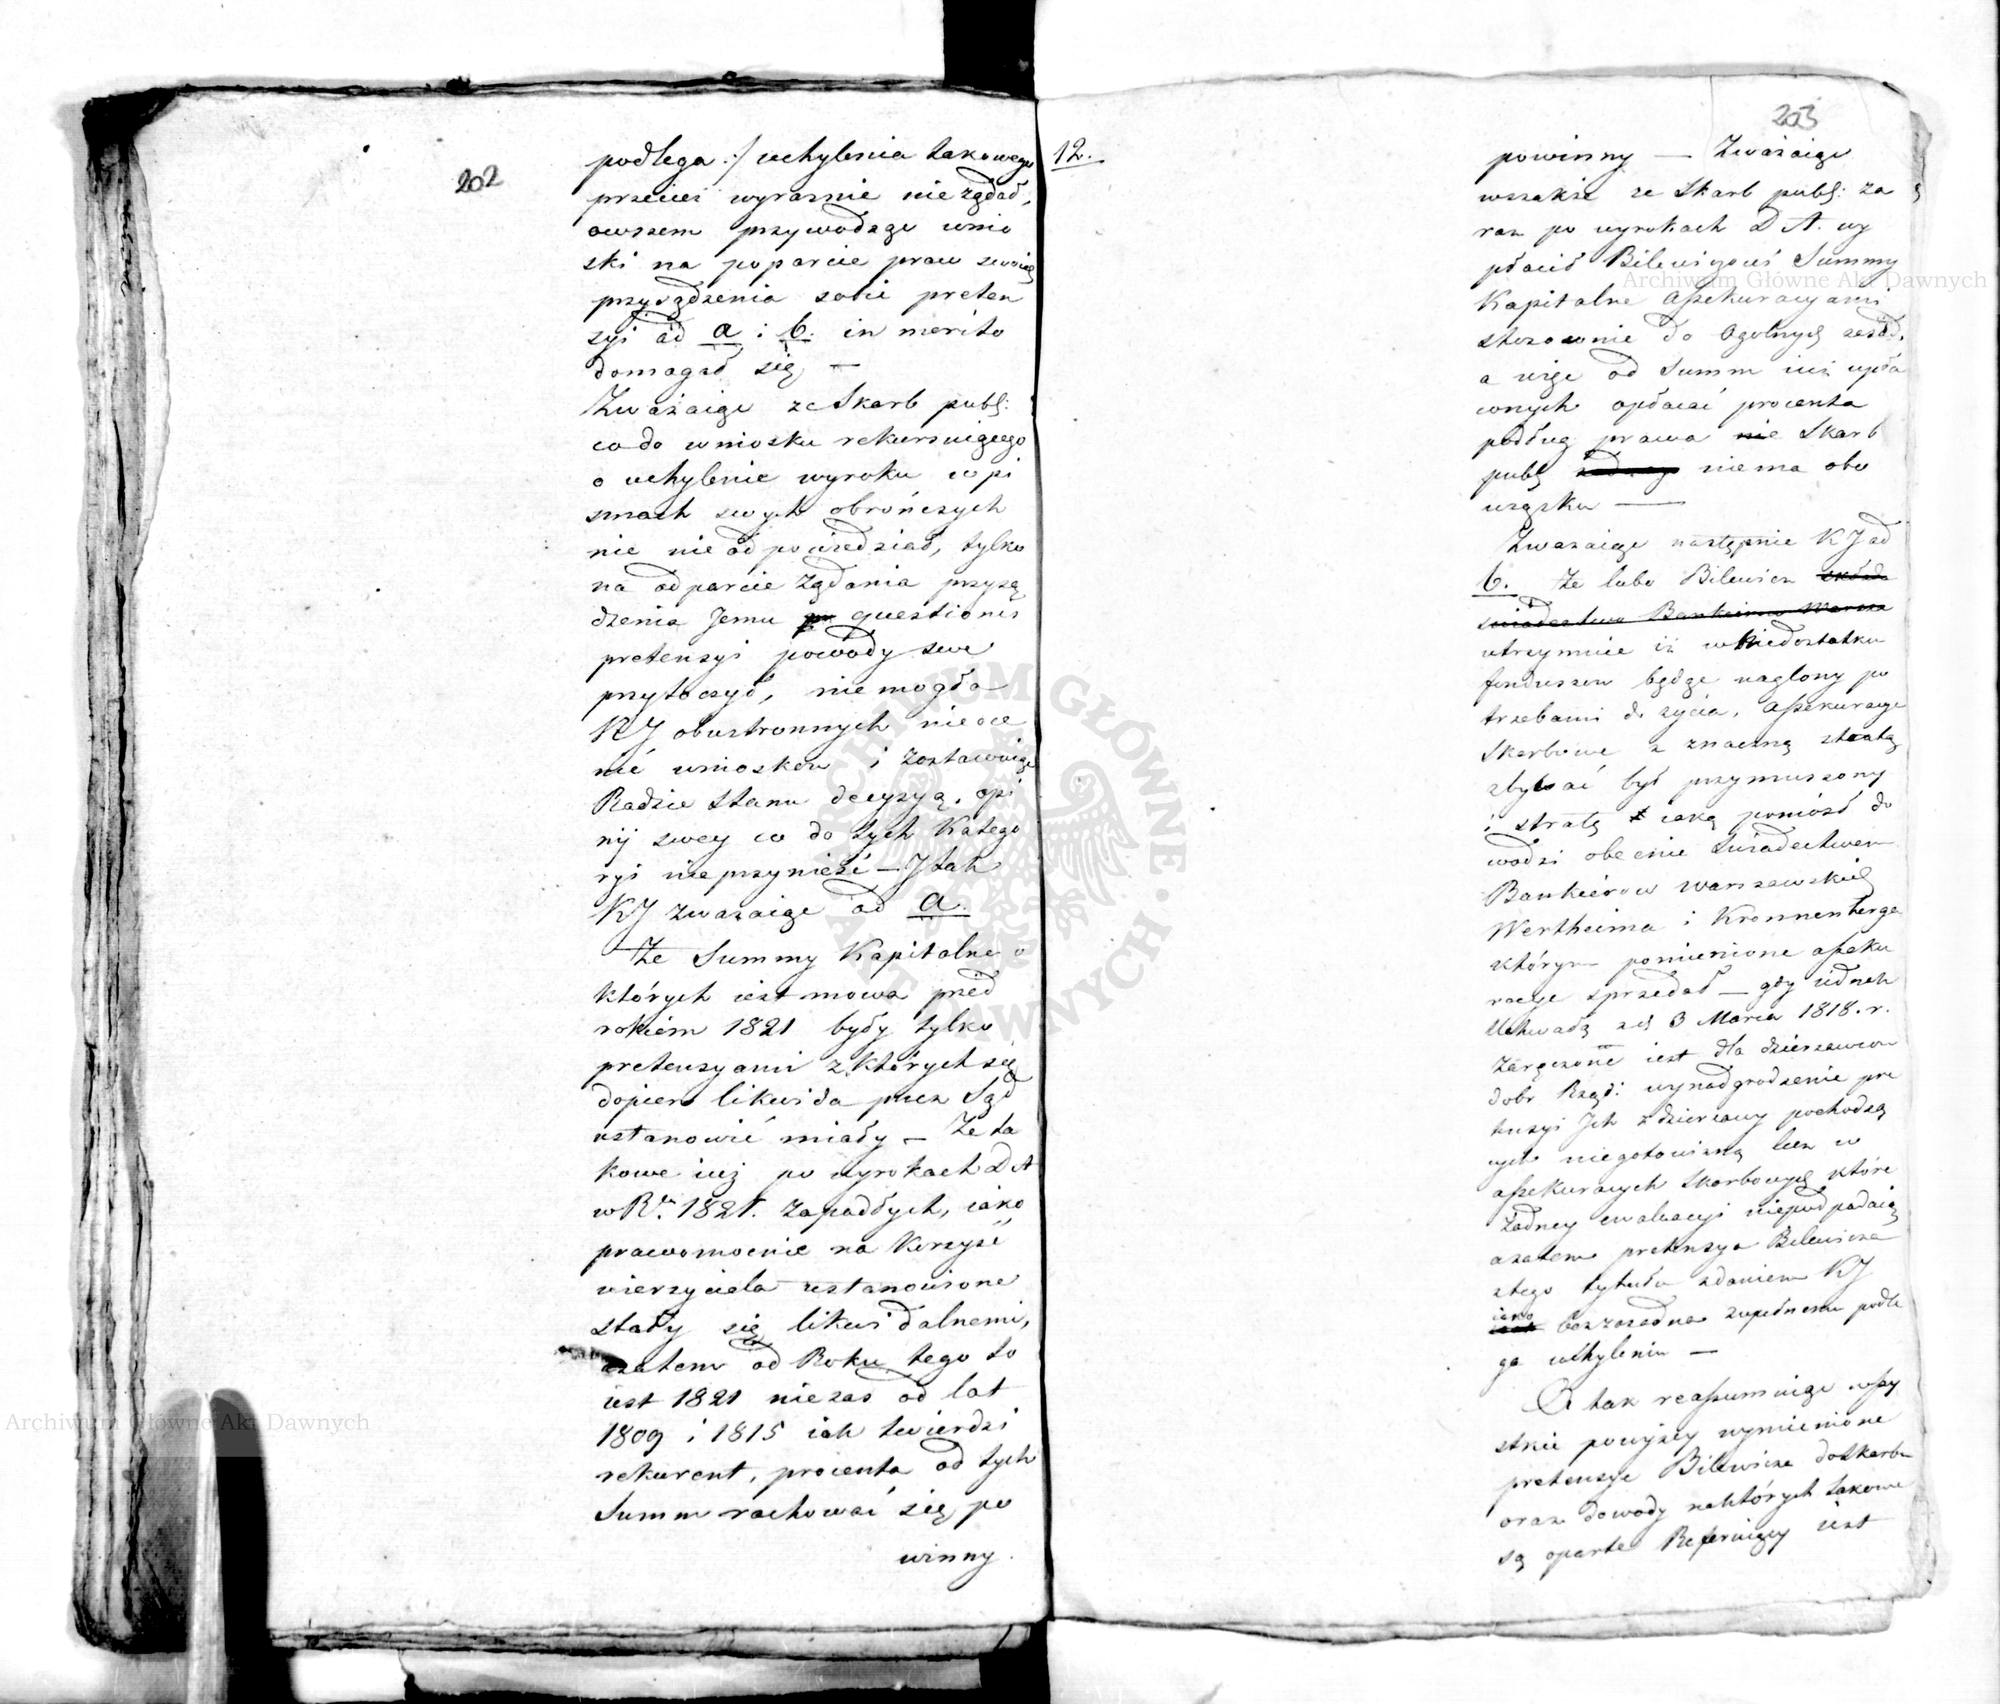 202
podlega :/ uchylenia takowego
przecież wyraznie nie żądał,
owszem przywodząc wnio
ski na poparcie praw swoich
przysądzenia sobie preten
syi ad a i b. in merito
domagał się —
Zważaiąc ze Skarb publ:
co do wniosku rekursuiącego
o uchylenie wyroku w pi
smach swych obrończych
nic nie odpowiedział, tylko
na odparcie żądania przysą
dzenia Jemu questionis
pretensyi powody swe
przytoczył, niemogła
KJ obustronnych nie oce
nić wniosków i zostawuiąc
Radzie Stanu decyzyą, opi
nij swey co do tych Katego
ryi nieprzynieść — J tak
KJ zwazaiąc ad a.
Że Summy Kapitalne o
których iest mowa przed
rokiem 1821 były tylko
pretensyami z których się
dopiero likwida przez Sąd
ustanowić miały — Że ta
kowe iuż po wyrokach D A
w Rku. 1821. zapadłych, iako
prawomocnie na Korzyść
wierzyciela ustanowione
stały się likwidalnemi,
zatem od Roku tego to
iest 1821 nie zas od lat
1809 i 1815 iak twierdzi
rekurent, procenta od tych
Summ rachować się po
winny.
12.
203
powinny — Zważaiąc
wszakże ze Skarb publ: za
raz po wyrokach D A. wy
płacił Bilewiczowi Summy
Kapitalne assekuracyami
stosownie do Ogolnych zasad,
a więc od Summ iuż wpła
conych opłacać procenta
podług prawa nie Skarb
publ niema obo
wiązku —
Zwazaiąc następnie KJ ad
b. Że lubo Bilewicz
swiadectwa Bankierów Warsza
utrzymuie iż w niedostatku
funduszów będąc naglony po
trzebami do zycia, assekuracye
Skarbowe z znaczną stratą
zbywać był przymuszony
i stratę iaką poniósł do
wodzi obecnie Swiadectwem
Bankierów warszawskich
Wertheima i Kronnenberga
którym pomienione asseku
racye sprzedał — gdy iednak
Uchwałą z d 3 Marca 1818. r.
zaręczone iest dla dzierzawców
dobr Rząd: wynadgrodzenie pre
tensyi Ich z dzierzawy pochodzą
cych niegotowizną lecz w
assekuracyach Skarbowych które
żadney ewaluacyi niepodpadaią
azatem pretensya Bilewicza
z tego tytułu zdaniem KJ
iako bezzasadna zupełnemu podle
ga uchyleniu —
A tak reassumuiąc wszy
stkie powyżey wymienione
pretensye Bilewicza do Skarbu
oraz dowody na których takowe
są oparte Referuiący iest
Archiwum Główne Akt Dawnych
Archiwum Główne Akt Dawnych
ARCHIWUM GŁÓWNE · AKT DAWNYCH ·